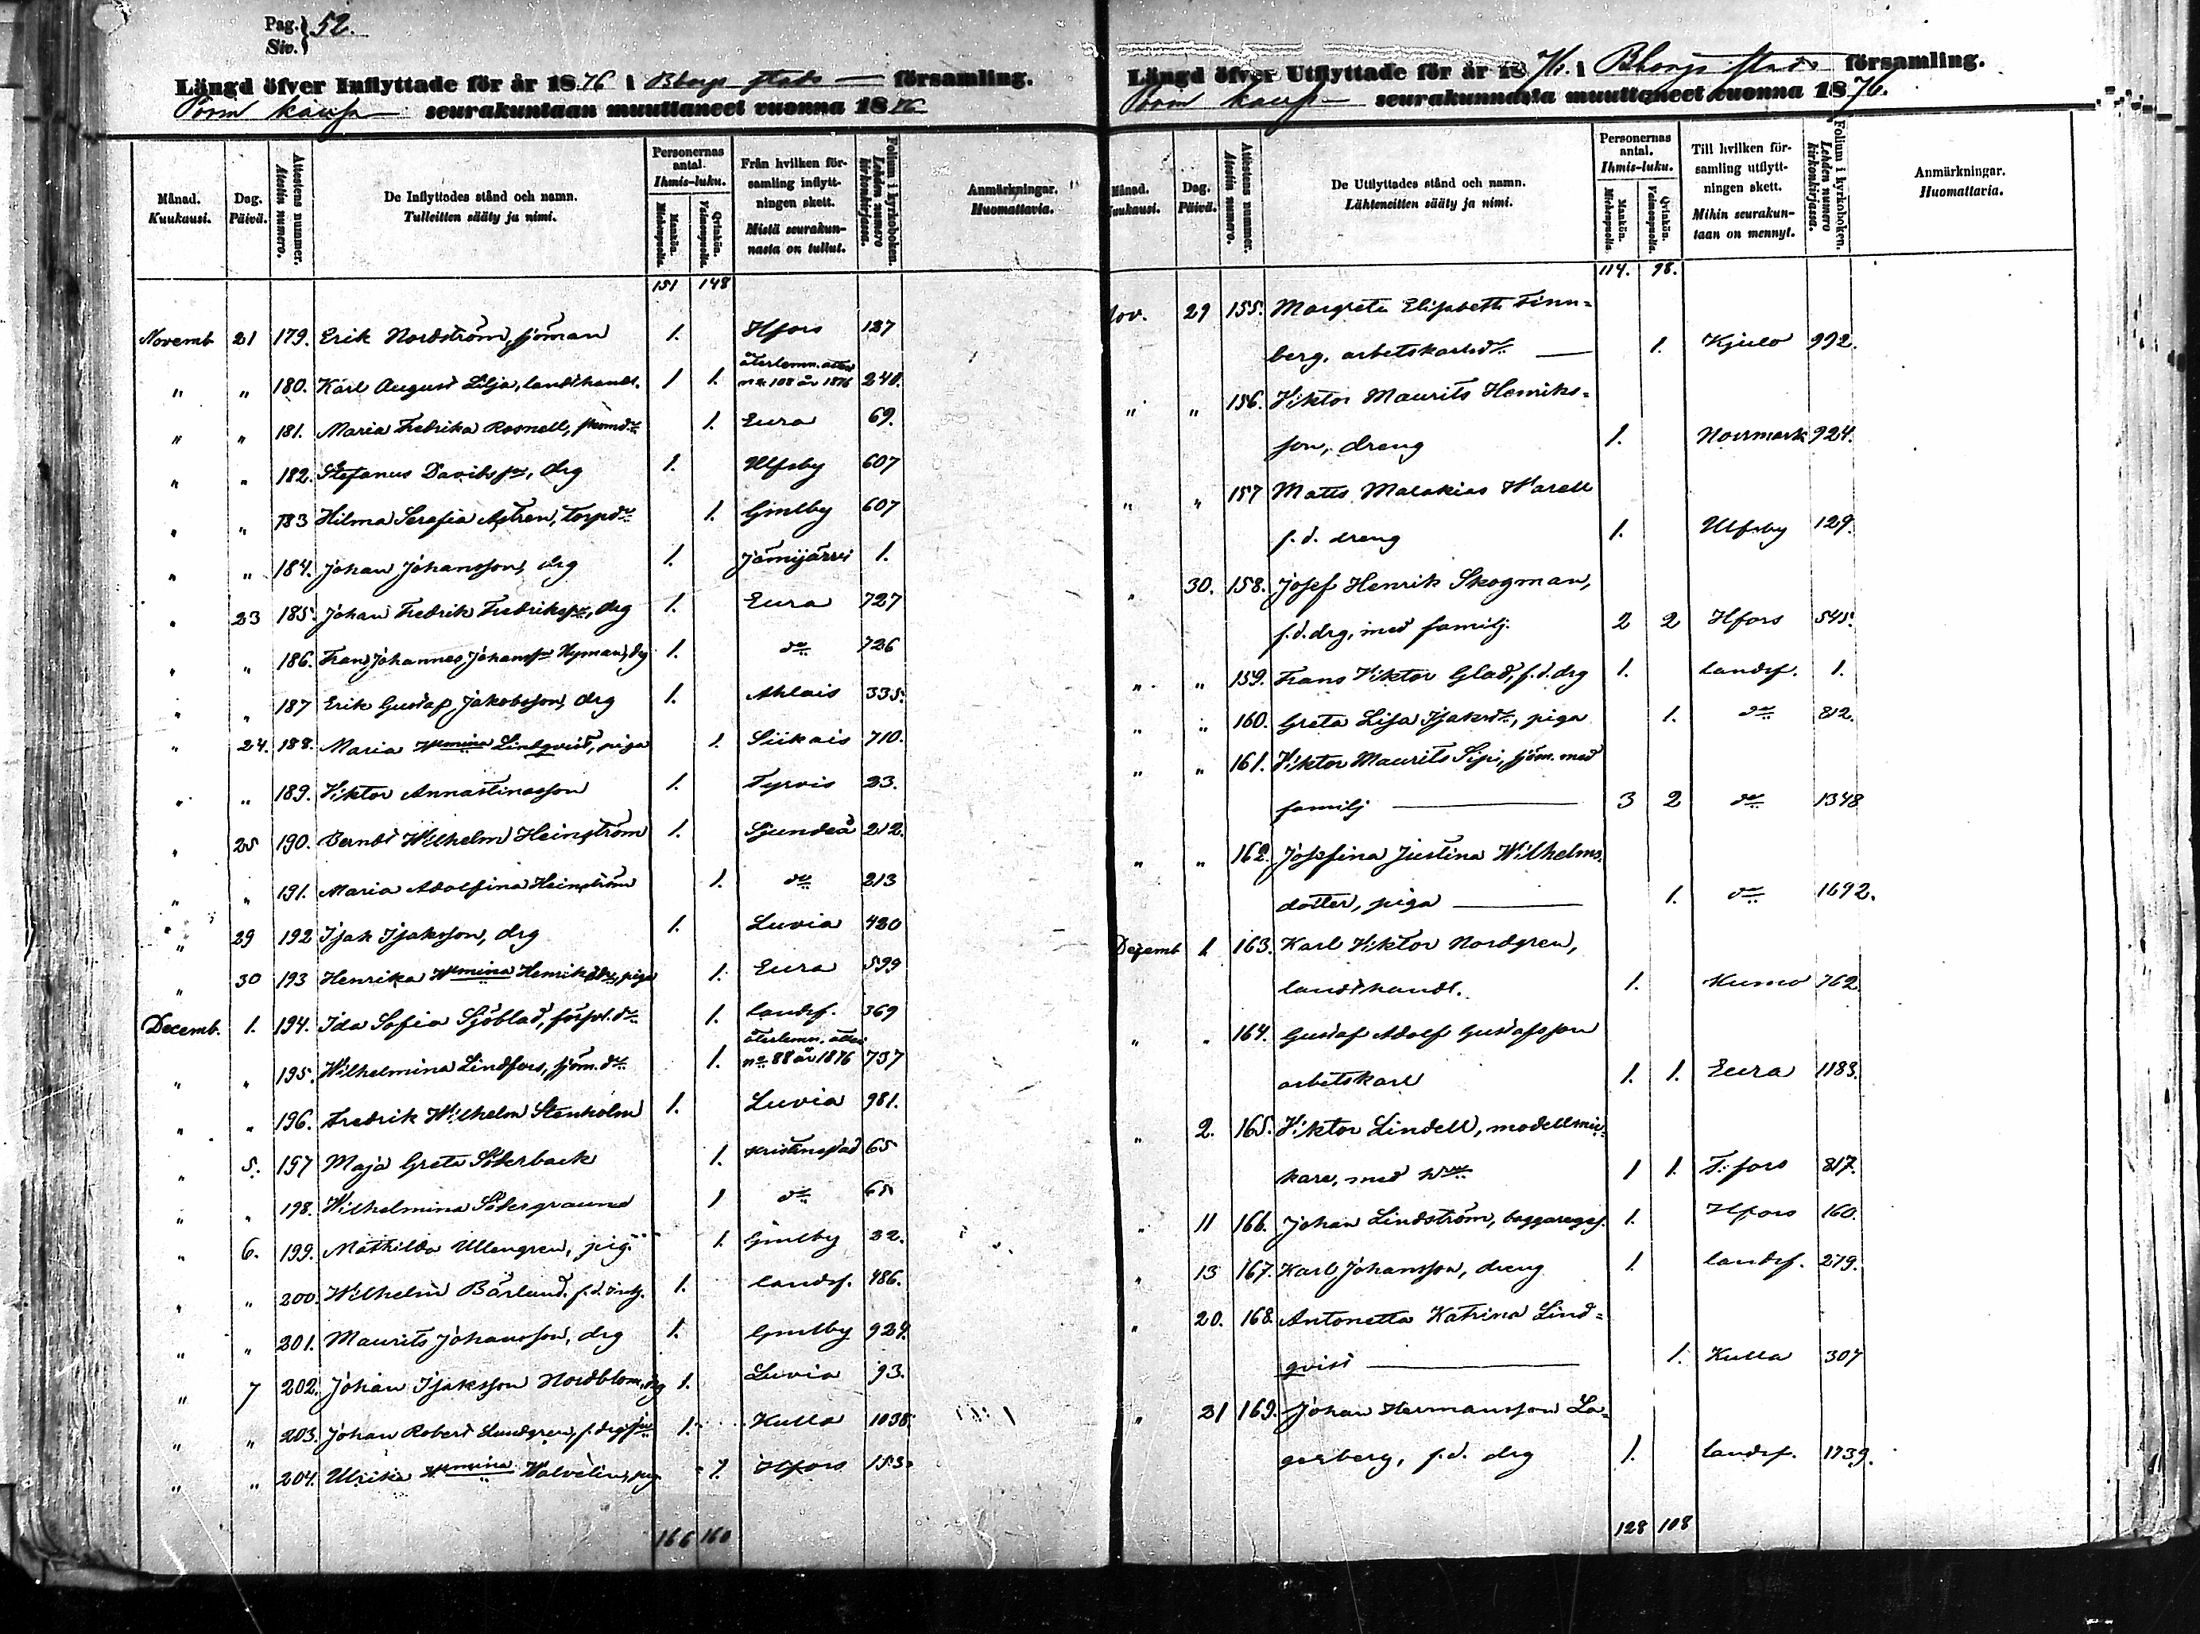 Pag. 52.
Siv.
Längd öfver Inflyttade för år 1876 i Bborgs stads församling.
Porin kaup seurakuntaan muuttaneet vuonna 1876
Månad. Kuukausi. Dag. Päivä. Attestens nummer. Atestin numero. De Inflyttades stånd och namn. Tulleitten sääty ja nimi. Personernas antal. Ihmis-luku. Mankön. Miehenpuolia. Qvinkön. Vaimonpuolia. Från hvilken församling inflyttningen skett. Mistä seurakunnasta on tullut. Folium i kyrkoboken. Lehden numero kirkonkirjassa. Anmärkningar. Huomattavia.
151 148
Novemb. 21 179. Erik Nordström, sjöman 1. Hfors 127
" " 180. Karl August Lilja, landthandl. 1 1. återlemn. attest no 108 år 1876 240.
" " 181. Maria Fredrika Rosnell, 1. Eura 69.
" " 182. Stefanus Davidsson, drg 1. Ulfsby 607
" " 183 Hilma Serafia Aström, torpdr 1. Gmlby 607
" " 184. Johan Johansson, drg 1. Jämijärvi 1.
" 23 185. Johan Fredrik Fredriksson, drg 1. Eura 727
" " 186. Frans Johannes Johansson Nyman, dg 1. do 726
" " 187 Erik Gustaf Jakobsson, drg 1. Ahlais 335.
" 24. 188. Maria Wmina Lindqvist, piga 1. Siikais 710.
" " 189. Viktor Annastinasson 1. Tyrvis 23.
" 25 190. Berndt Wilhelm Heinström 1. Sjundeå 212.
" " 191. Maria Adolfina Heinström 1. do 213
" 29 192 Isak Isaksson, drg 1. Luvia 420
" 30 193 Henrika Wmina Henriksdr, piga 1. Eura 599
Decemb. 1. 194. Ida Sofia Sjöblad, 1. landsf. 369
" " 195. Wilhelmina Lindfors, sjöm.dr 1. återlemn. attest no 88 år 1876 737
" " 196. Fredrik Wilhelm Stenholm 1. Luvia 981.
" 5. 197 Maja Greta Söderback 1. Kristinestad 65
" " 198. Wilhelmina Södergraund 1 do 65
" 6. 199. Mathilda Ullengren, pig. 1. Gmlby 32.
" " 200. Wilhelm Bärlund, f.d. 1. landsf. 486.
" " 201. Maurits Johansson, drg 1. Gmlby 924.
" 7 202. Johan Isaksson Nordblom, drg 1. Luvia 93.
" " 203. Johan Robert Lundgren, f. drgson 1. Kulla 1038
" " 204. Ulrika Wmina Walvelin, pig 1. Hfors 153.
166 160
Längd öfver Utflyttade för år 1876. i Bborgs stads församling.
Porin kaup seurakunnasta muuttaneet vuonna 1876.
Månad. Kuukausi. Dag. Päivä. Attestens nummer. Atestin numero. De Utflyttades stånd och namn. Lähteneitten sääty ja nimi. Personernas antal. Ihmis-luku. Mankön. Miehenpuolia. Qvinkön. Vaimonpuolia. Till hvilken församling utflyttningen skett. Mihin seurakuntaan on mennyt. Folium i kyrkoboken. Lehden numero kirkonkirjassa. Anmärkningar. Huomattavia.
114. 98.
Nov. 29 155. Margreta Elisabeth Finn-
berg, arbetskarlsdr 1. Kjulo 992.
" " 156. Viktor Maurits Henriks-
son, dreng 1. Norrmark 924.
" " 157 Matts Malakias Warell
f.d. dreng 1. Ulfsby 129.
" 30. 158. Josef Henrik Skogman,
f.d. drg, med familj. 2 2 Hfors 545.
" " 159. Frans Viktor Glad, f.d. drg 1. landsf. 1.
" " 160. Greta Lisa Isaksdr, piga 1. do 812.
" " 161. Viktor Maurits Sipi, sjöm. med
familj 3 2 do 1348
" " 162. Josefina Justina Wilhelms-
dotter, piga 1. do 1692.
Decemb 1 163. Karl Viktor Nordgren,
landthandl. 1. Kumo 762
" " 164. Gustaf Adolf Gustafsson
arbetskarl 1. 1. Eura 1183.
" 2. 165. Viktor Lindell, modellsnic-
kare, med hru 1 1. T:fors 817.
" 11 166. Johan Lindström, baggaregs. 1. Hfors 160.
" 13 167. Karl Johansson, dreng 1. landsf. 279.
" 20. 168. Antonetta Katrina Lind-
qvist 1. Kulla 307
" 21 169. Johan Hermansson La-
gerberg, f.d. drg 1. landsf. 1739.
128 108